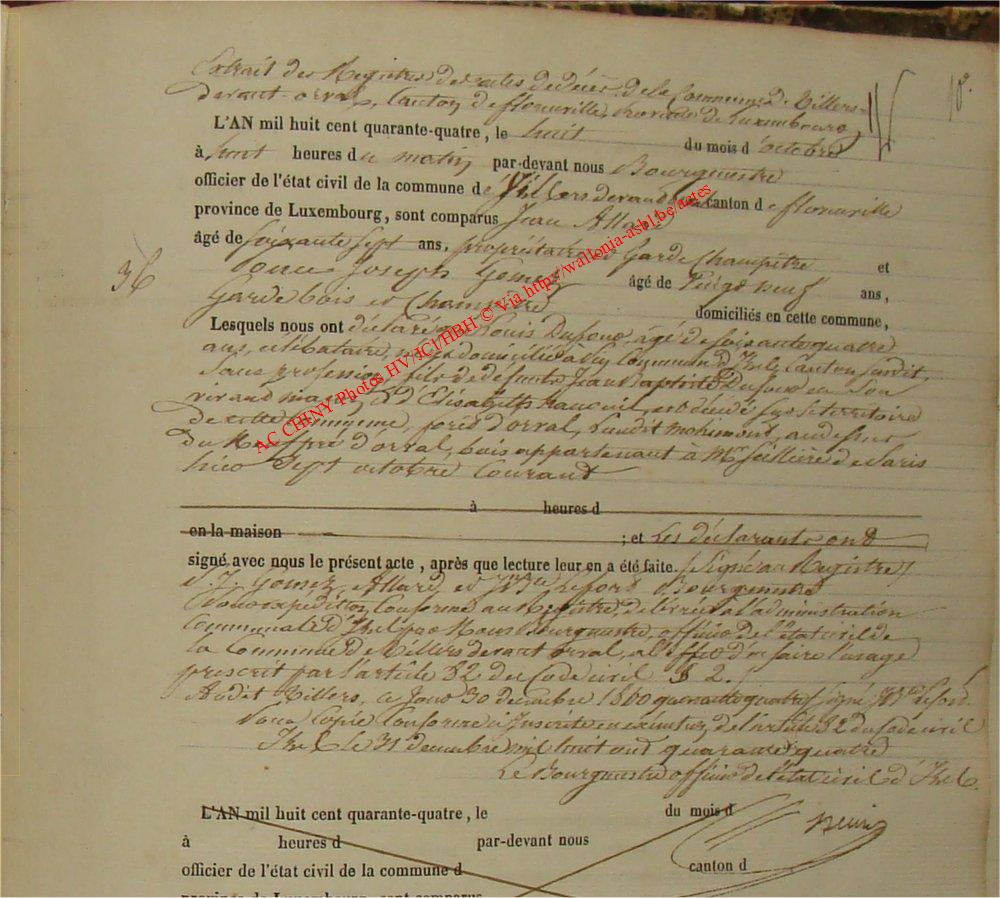 Extrait des Registres des actes de décès de la Commune de Villers-
devant-orval, Canton de florenville, Province de Luxembourg
18.
L'AN mil huit cent quarante-quatre, le huit du mois d'octobre
à huit heures du matin par-devant nous Bourgmestre
officier de l'état civil de la commune de Villers devant canton de florenville
province de Luxembourg, sont comparus Jean Allard
âgé de soixante sept ans, propriétaire Garde Champêtre et
Joseph Gomez âgé de Vingt neuf ans,
Garde bois et Champêtre domiciliés en cette commune,
36
Lesquels nous ont déclaré Louis Dufour, âgé de soixante quatre
ans, célibataire, domicilié Commune d'Izel, Canton susdit,
Sans profession, fils de défunts Jean baptiste Dufour en son
vivant Elisabeth est décédé sur le territoire
de cette Commune, forêt d'orval, lieudit mohimont, au dessus
du d'orval, bois appartenant à Mr Seillière de Paris
hier Sept octobre Courant
à heures d
en la maison ; et Les déclarants ont
signé avec nous le présent acte, après que lecture leur en a été faite. (Signé au Registre)
S. J. Gomez, Allard, et Lefort Bourgmestre
Pour expédition Conforme au Registre, délivrée à l'administration
Communale d'Izel par Nous Bourgmestre, officier de l'état civil de
la Commune de Villers devant orval, à l'effet d'en faire l'usage
prescrit par l'article 82 du Code civil § 2.
Audit Villers, ce jour 30 décembre 1800 quarante quatre, signé Lefort.
Pour Copie Conforme & Inscrite en exécution de l'article 82 du Code civil
Izel le 31 décembre mil huit cent quarante quatre
Le Bourgmestre officier de l'état civil d'Izel.
L'AN mil huit cent quarante-quatre, le du mois d
à heures d par-devant nous
officier de l'état civil de la commune d canton d
province de Luxembourg, sont comparus
AC CHINY Photos HV/JCI/HBH © Via http://wallonia-asbl.be/actes